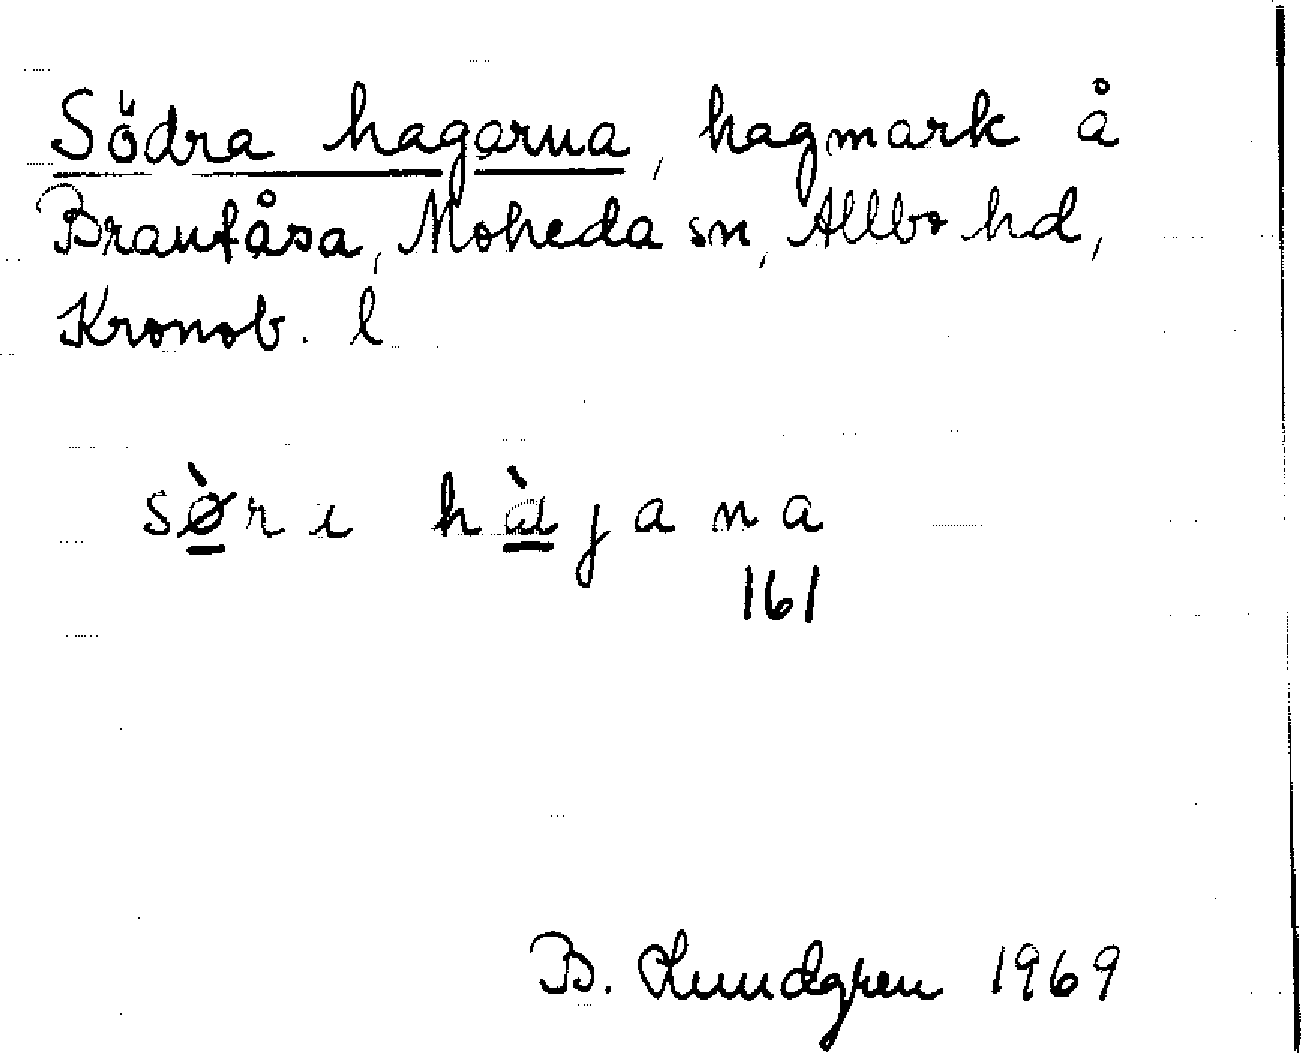 Södra hagarna, hagmark å
Brantåsa, Moheda sn, Allbo hd,
Kronob. l
sø̀rɩ hàjana
161
B. Lundgren 1969